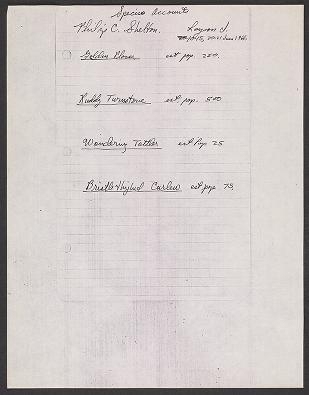 Species Accounts
Philip C. Shelton. Laysan I.
20-21 June 1966.
Golden Plover est pop. 250.
Ruddy Turnstone est. pop. 500
Wandering Tattler est Pop 25
Bristle-thighed Curlew est pop. 75